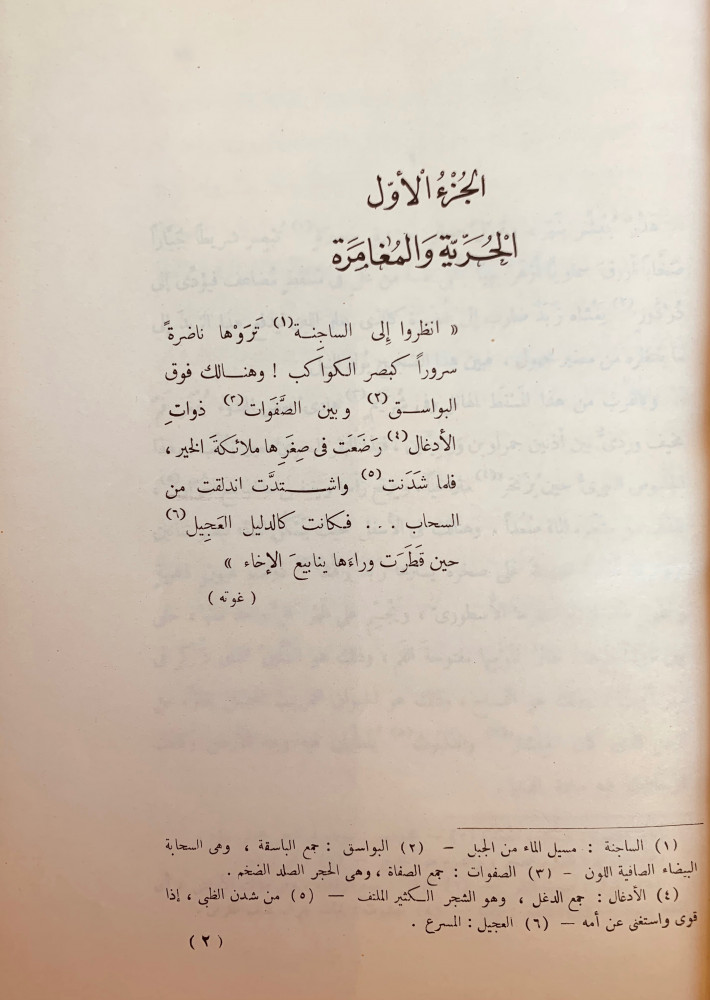 الجُزْءُ الْأوّل
الْحُرِّيَّة وَالمُغَامَرَة
« انظروا إِلى الساجِنة(١) تَرَوْها ناضرةً
سروراً كبصر الكواكب ! وهنالك فوق
البواسق(٢) وبين الصَّفَوات(٣) ذواتِ
الأدغال(٤) رَضَعَت فى صِغَرِها ملائكةَ الخير ،
فلما شَدَنت(٥) واشتدَّت اندلقت من
السحاب . . . فكانت كالدليل العَجِيل(٦)
حين قَطَرَت وراءَها ينابيعَ الإخاء »
( غوته )
(١) الساجنة : مسيل الماء من الجبل – (٢) البواسق : جمع الباسقة ، وهى السحابة
البيضاء الصافية اللون – (٣) الصفوات : جمع الصفاة ، وهى الحجر الصلد الضخم .
(٤) الأدغال : جمع الدغل ، وهو الشجر الكثير الملتف – (٥) من شدن الظبى ، إذا
قوى واستغنى عن أمه – (٦) العجيل : المسرع .
( ٢ )